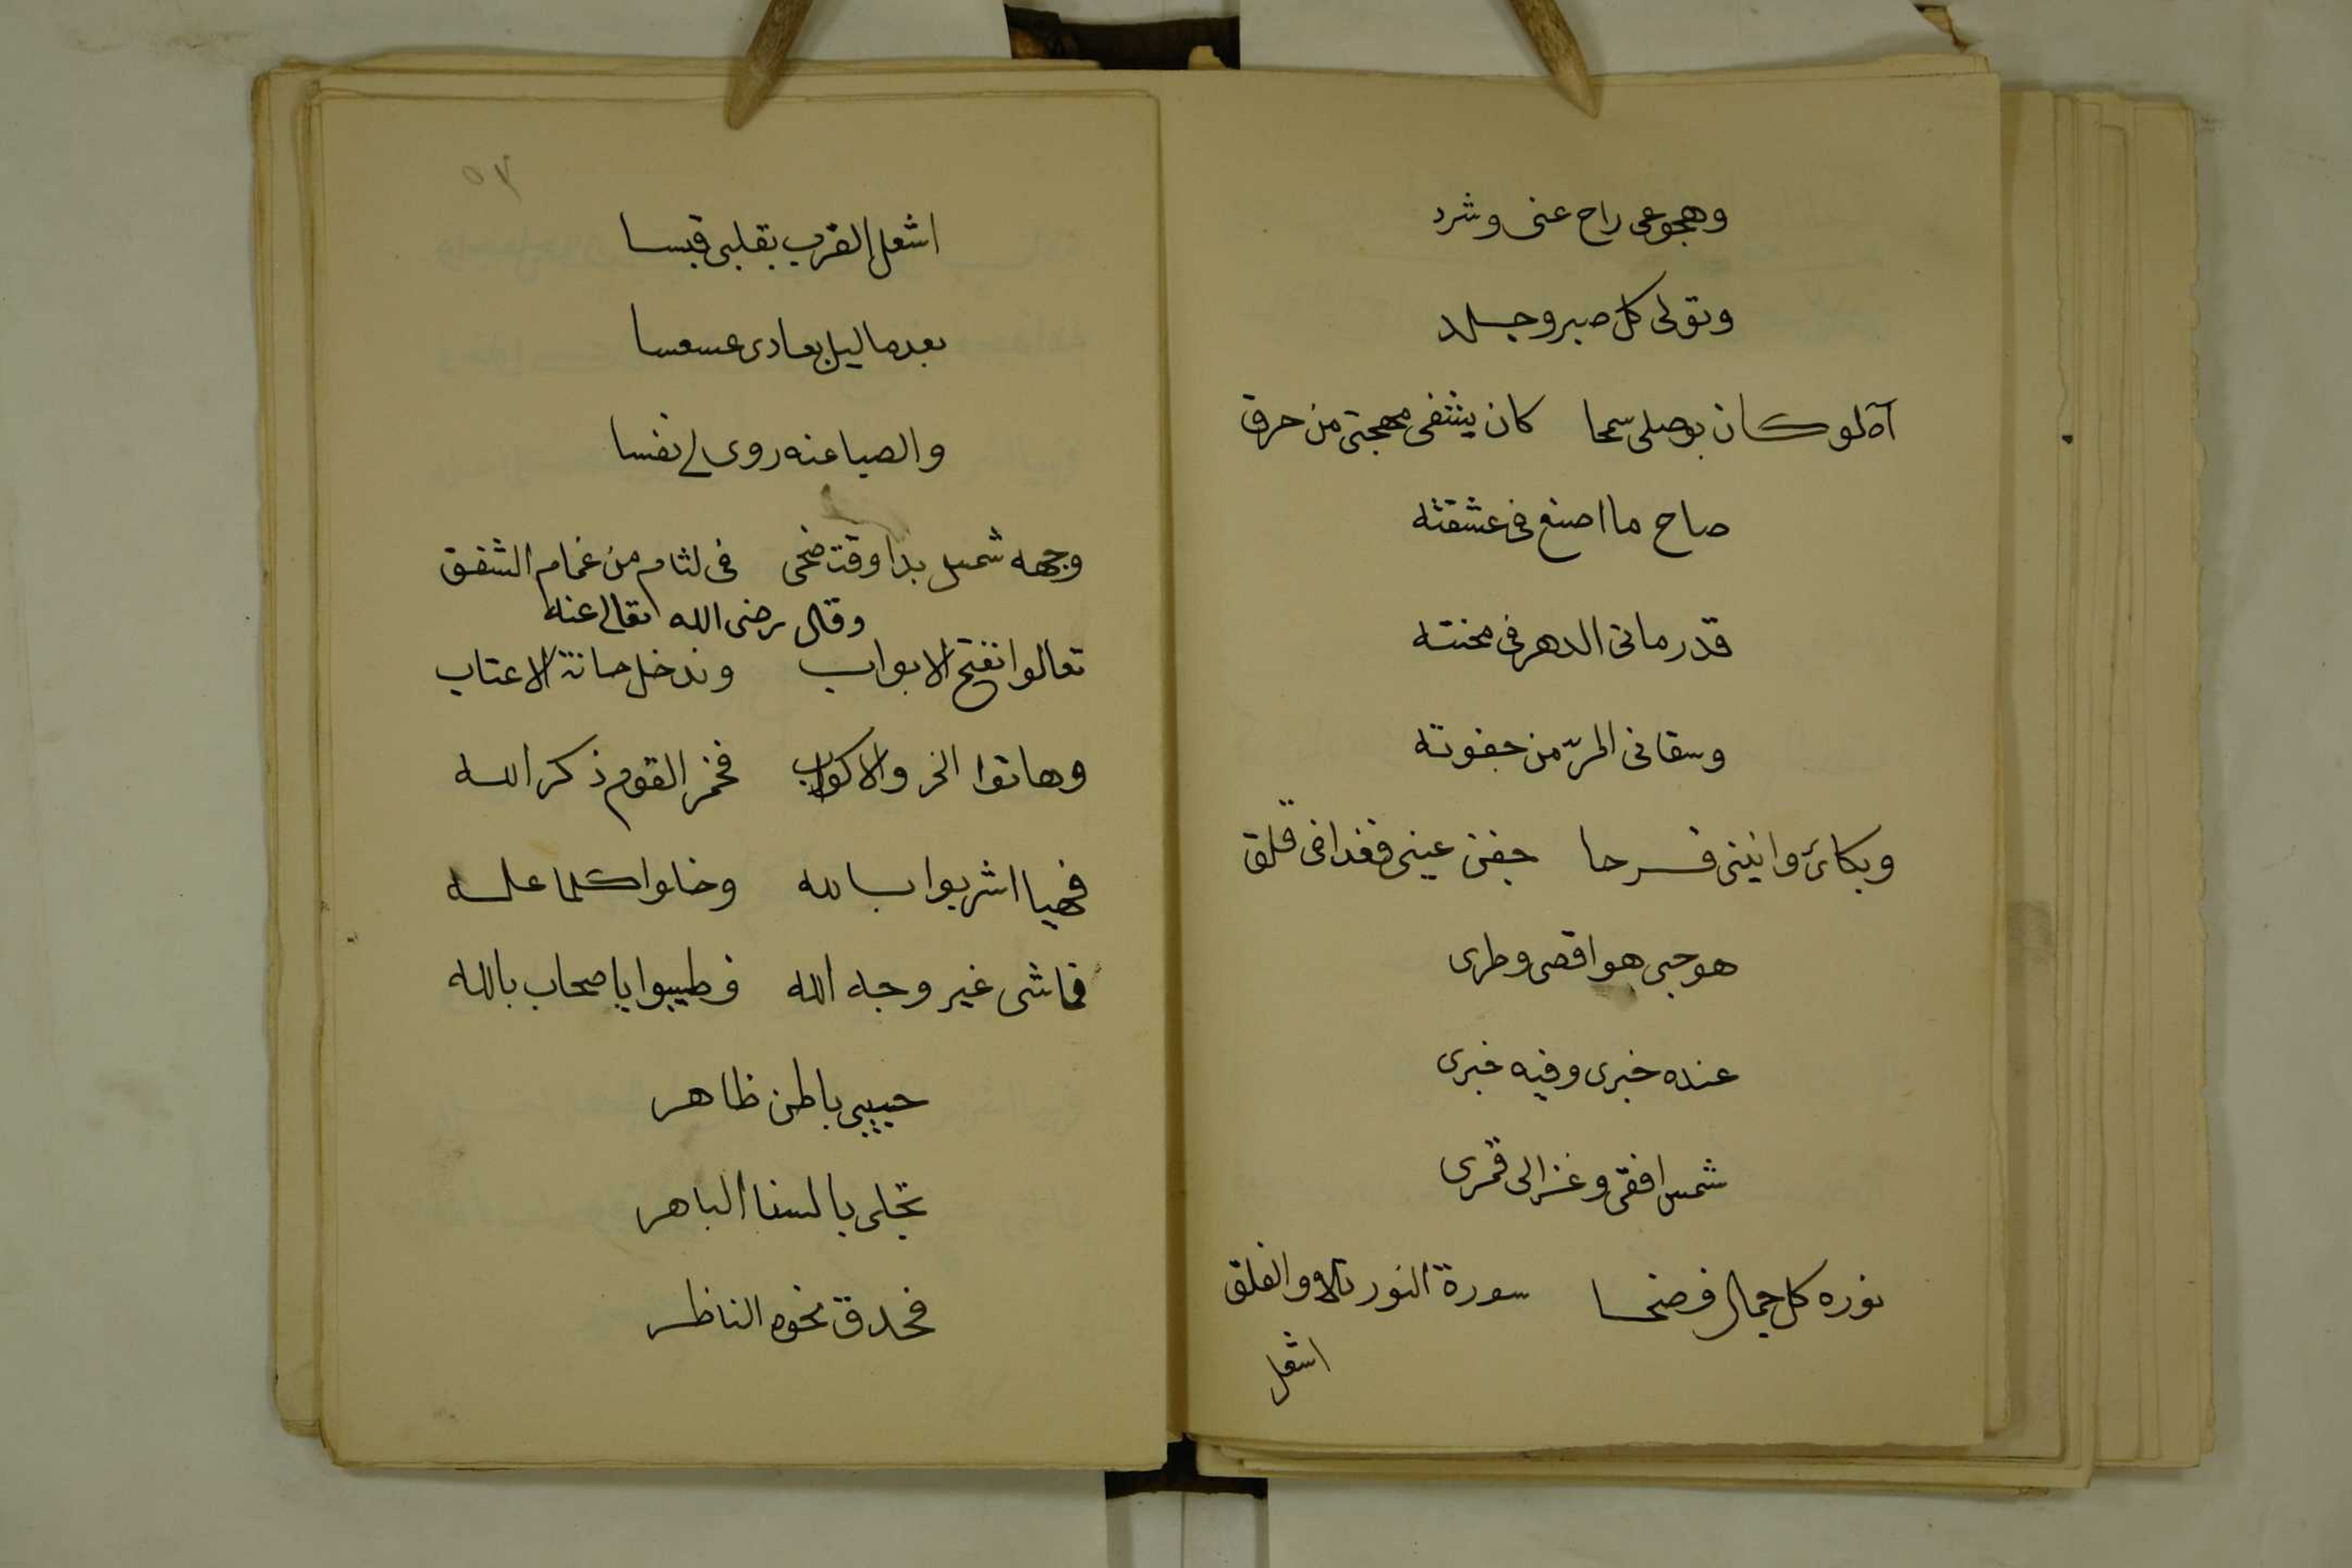 وهجوعى راح عنى وشرد
وتولى كل صبر وجلد
آه لو كان بوصلى سمحا كان يشفى مهجتى من حرق
صاح ما اصنع فى عشقته
قد رمانى الدهر فى محنته
وسقانى المرّ من جفوته
وبكائى وانينى قرحا جفن عينى فغدا فى قلق
هو حبى هو اقصى وطرى
عنده خبرى وفيه خبرى
شمس افقى وغزالى قمرى
نوره كل جمال فضحا سورة النور تلا والفلق
اشعل
٥٣
اشعل القرب بقلبى قبسا
بعد ما ليل بعادى عسعسا
والصبا عنه روى لى نفسا
وجهه شمس بدا وقت ضحى فى لثام من غمام الشفق
وقال رضى الله تعالى عنه
تعالوا نفتح الابواب وندخل حانة الاعتاب
وهاتوا الخمر والاكواب فخمر القوم ذكر الله
فهيا اشربوا بالله وخلوا كلما
فما شى غير وجه الله فطيبوا يا صحاب بالله
حبيبى باطن ظاهر
تجلى بالسنا الباهر
فحدق نحوه الناظر